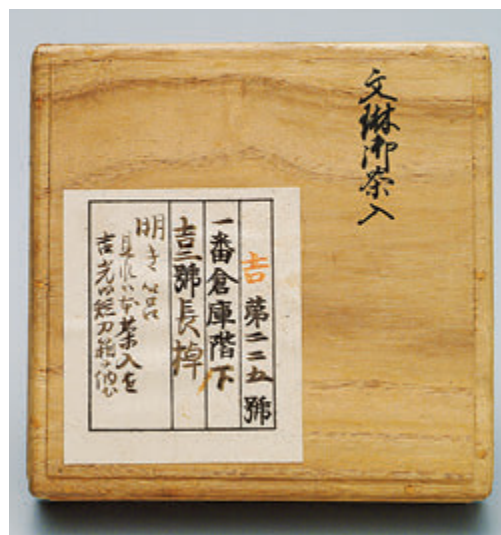 文琳御茶入
吉 第二二五號
一番倉庫階下
吉三號長棹
明き箱
茶入を
吉光の短刀箱に納む